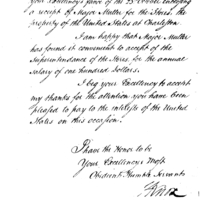 your Excellency's favor of the 23 enclosing
a receipt of Major Muller for the Stores the
property of the United States at Charleston
I am happy that Major Muller
has found it convenient to accept of the
Superintendance of the Stores, for the annual
salary of one hundred Dollars.
I beg your Excellency to accept
my thanks for the attention you have been
pleased to pay to the interests of the United
States on this occasion.
I have the Honor to be
Your Excellency's Most
Obedient Humble Servant
HKnox